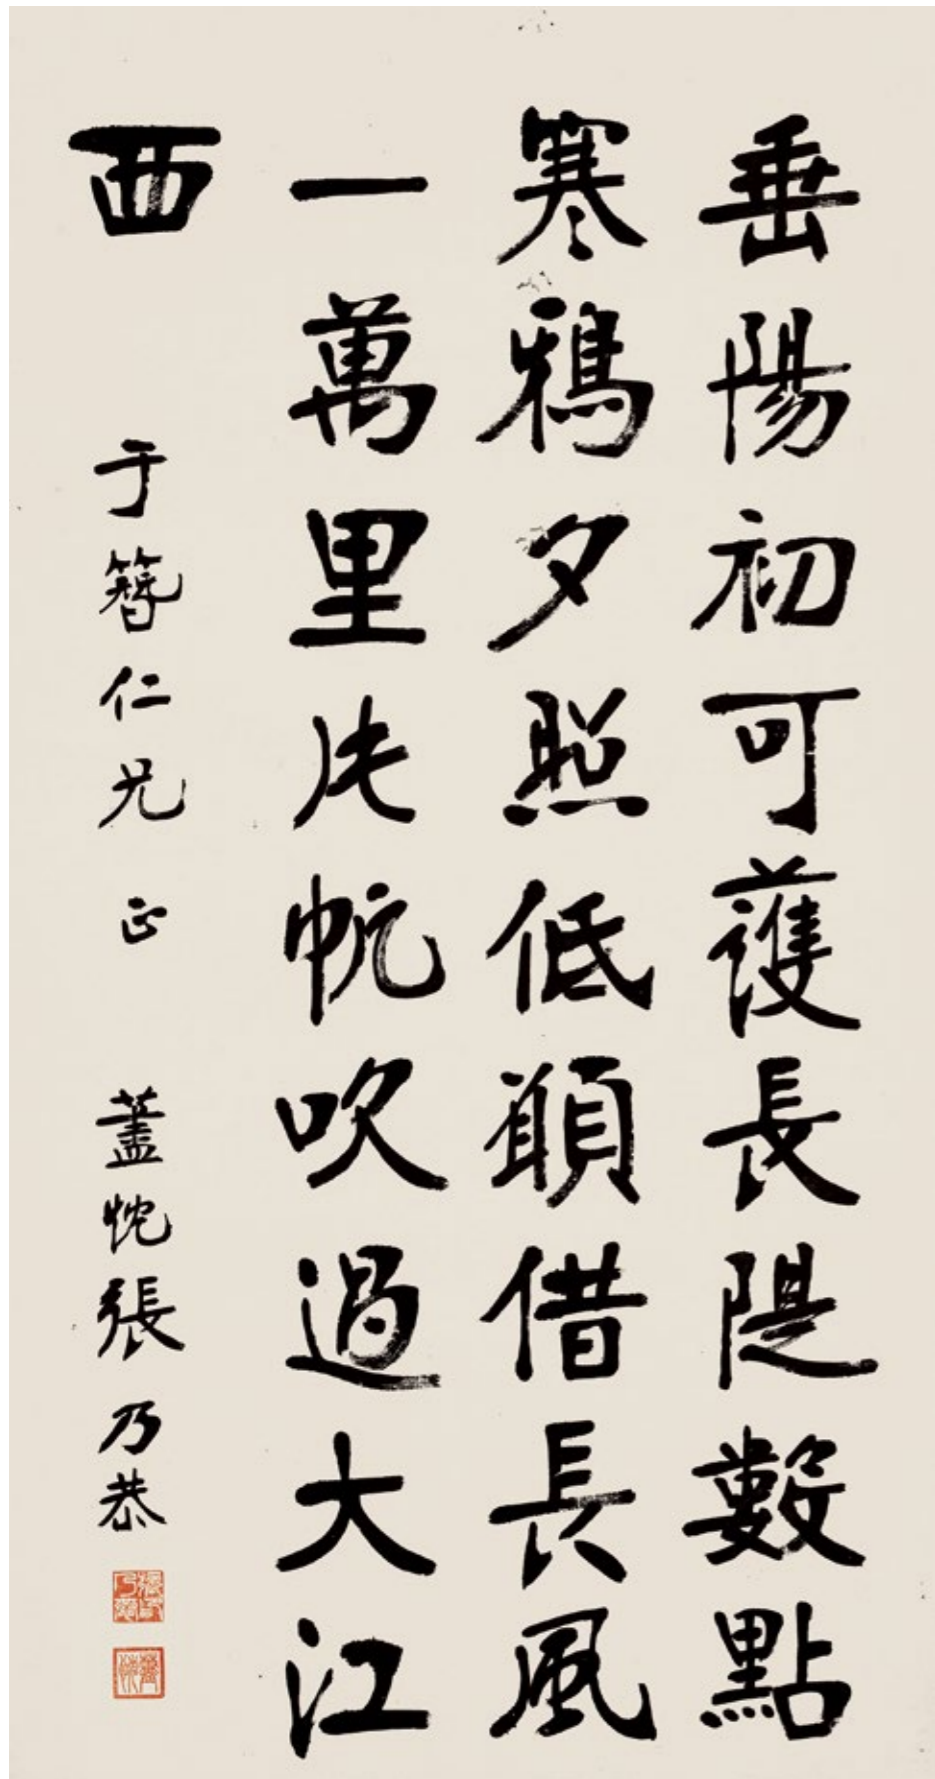 垂陽初可護長隄數點
寒鴉夕照低願借長風
一萬里片帆吹過大江
西
于簪仁兄 正 藎忱張乃恭
藎忱